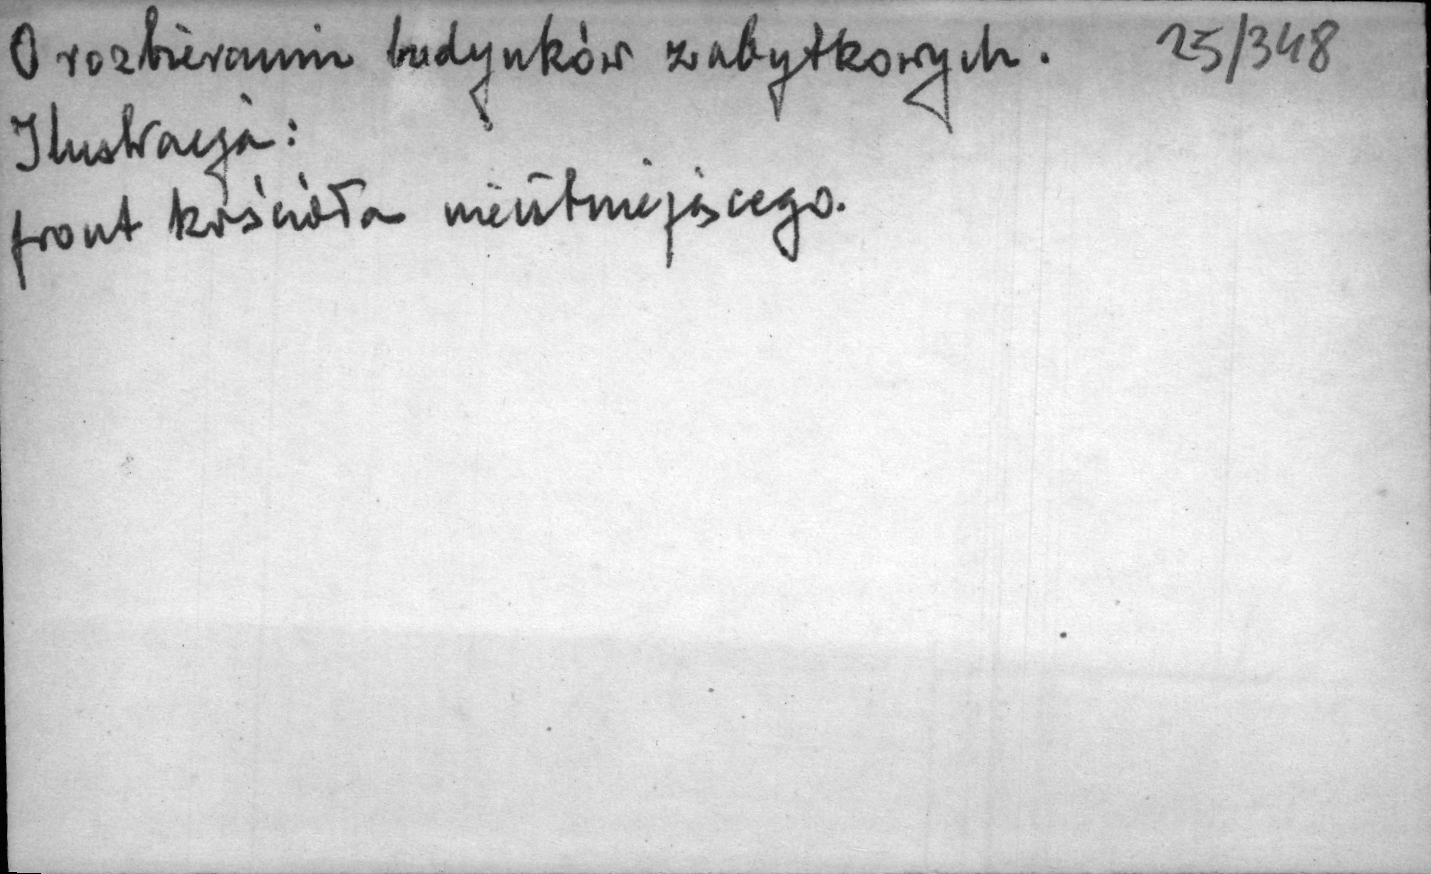 O rozbieraniu budynków zabytkowych. 25/348
Ilustracja:
front kościoła nieistniejącego.